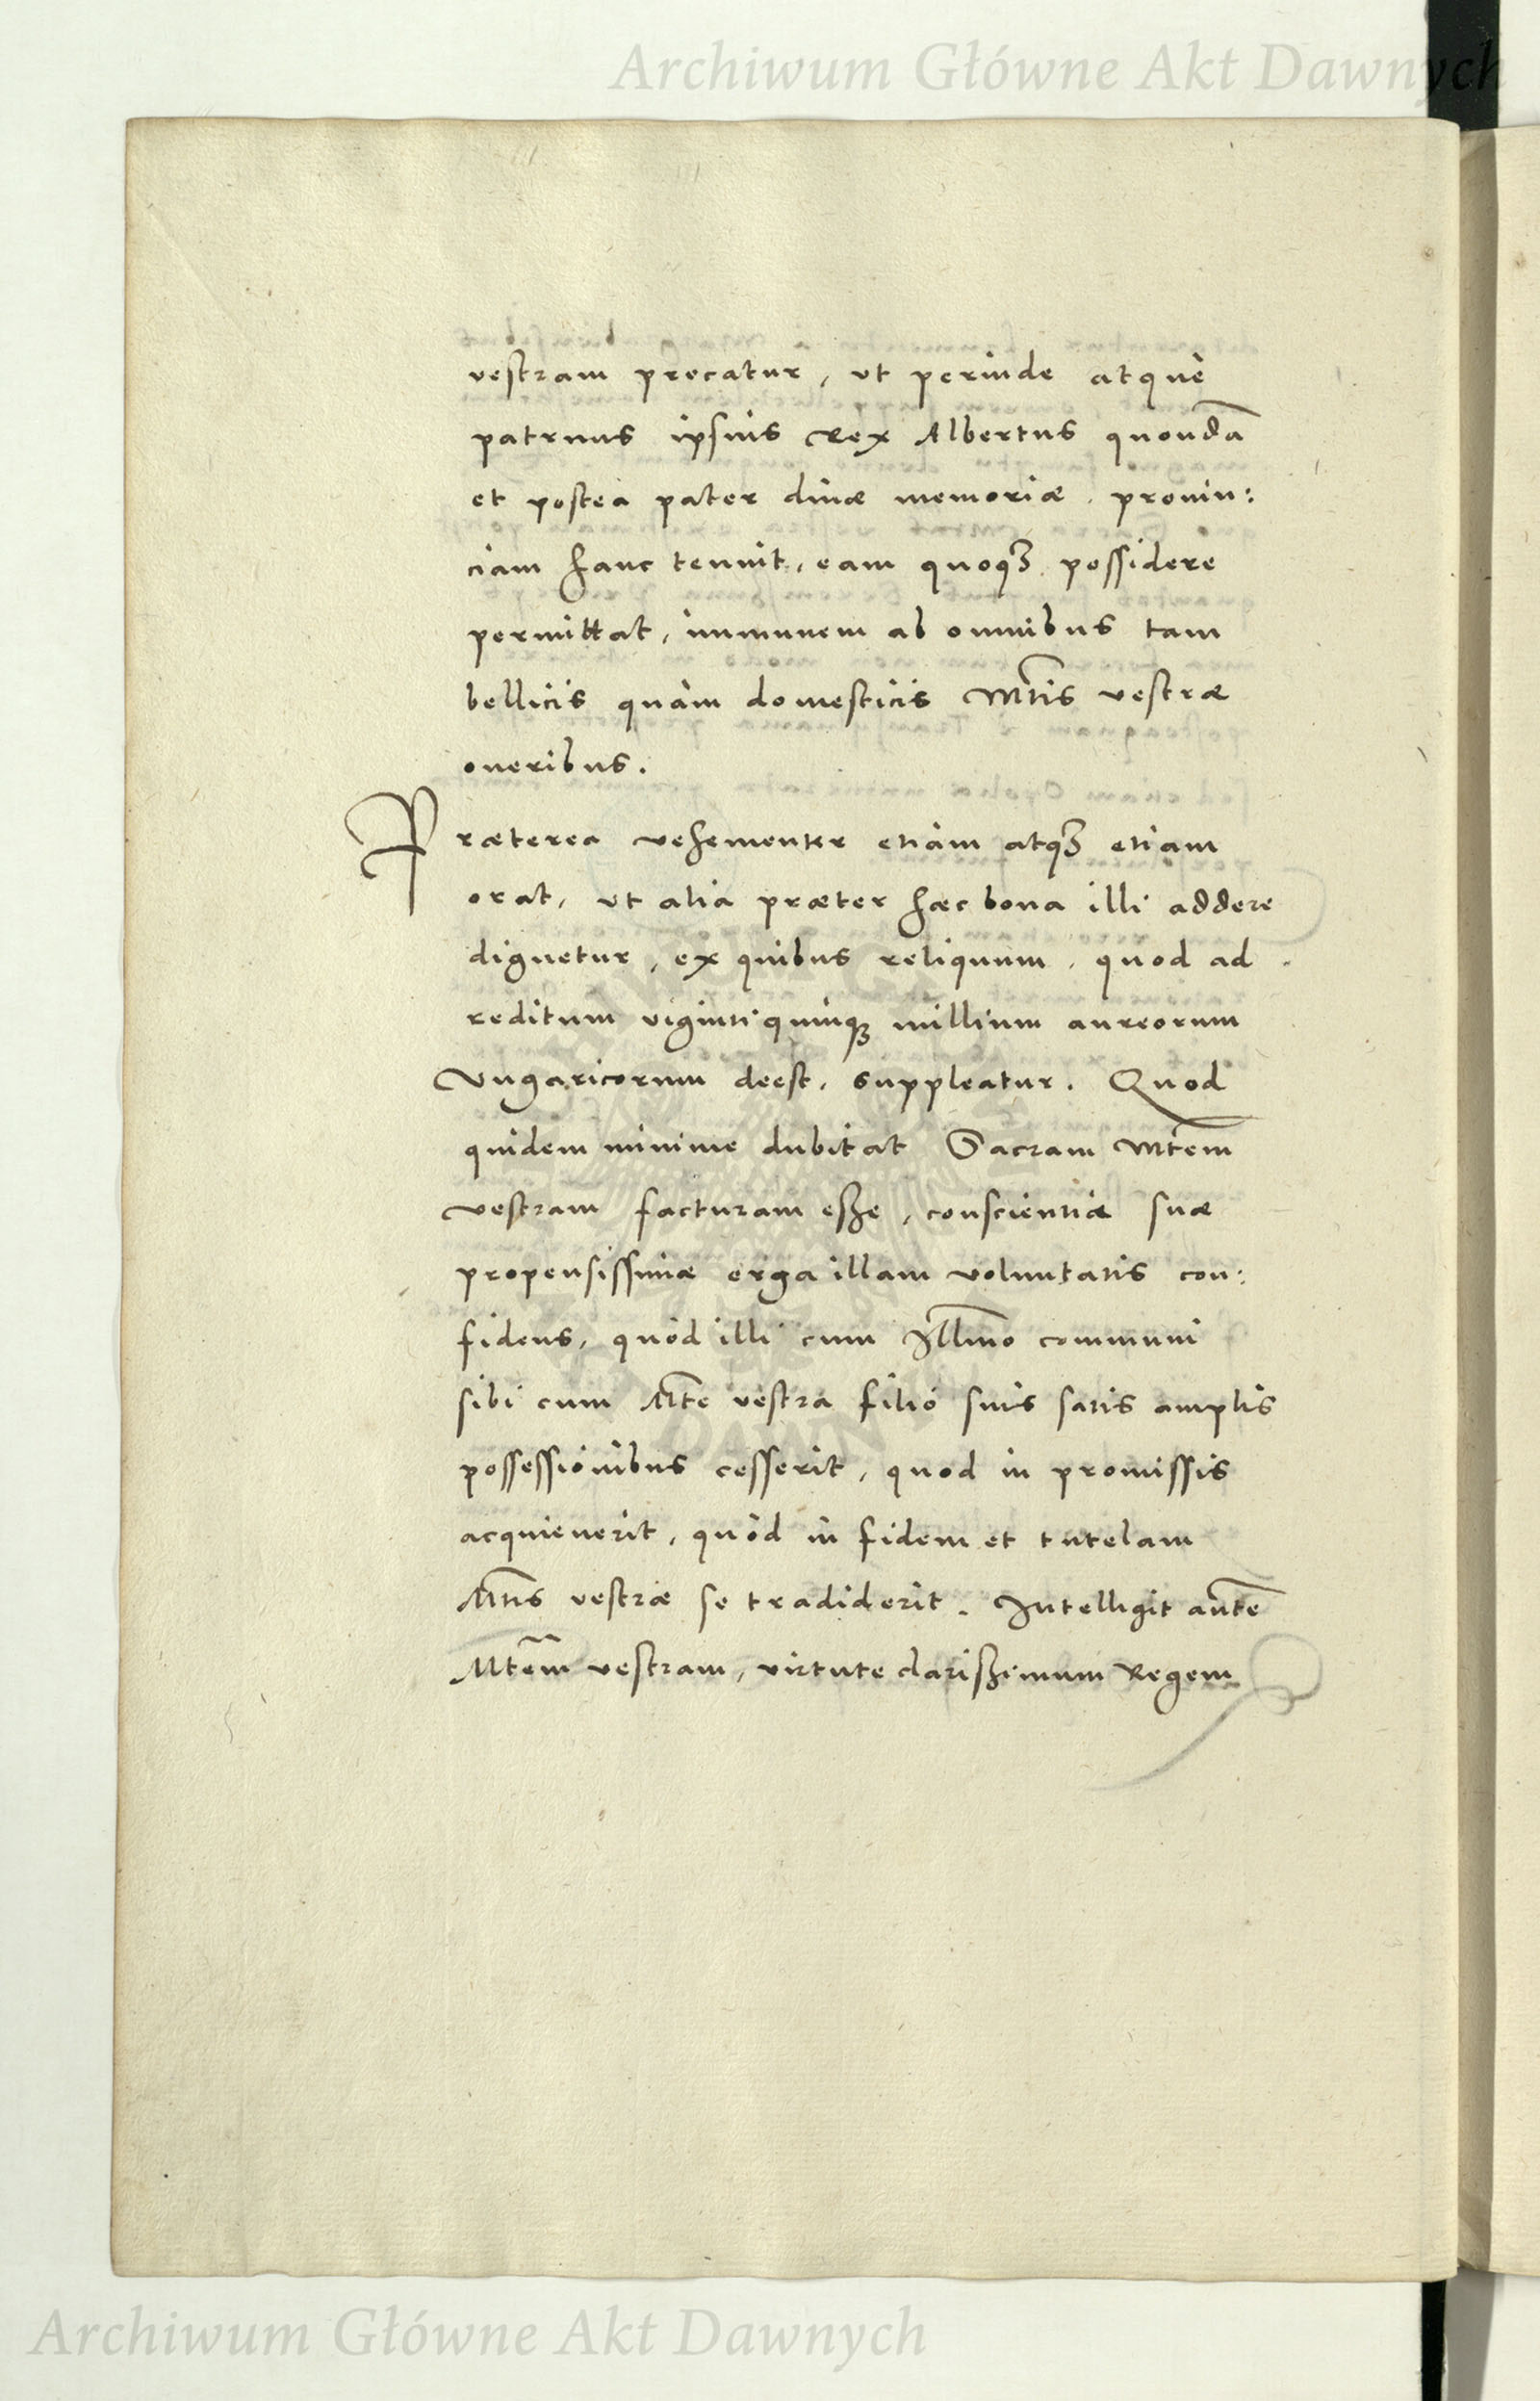 Archiwum Główne Akt Dawnych
vestram precatur, ut perinde atque
patruus ipsius Rex Albertus quondã
et postea pater divæ memoriæ, provin:
ciam hanc tenuit, eam quoq3 possidere
permittat, immunem ab omnibus tam
bellicis quàm domesticis Mtis vestræ
oneribus.
Præterea vehementer etiam atq3 etiam
orat, ut alia præter hæc bona illi addere
dignetur, ex quibus reliquum, quod ad
reditum viginti quinq3 millium aureorum
Vngaricorum deest, suppleatur. Quod
quidem minime dubitat Sacram Mtem
vestram facturam esse, conscientiæ suæ
propensissimæ erga illam voluntatis con:
fidens, quòd illi cum Illmo communi
sibi cum Mte vestra filio suis satis amplis
possessionibus cesserit, quod in promissis
acquieverit, quòd in fidem et tutelam
Mtis vestræ se tradiderit. Intelligit autẽ
Mtem vestram, virtute clarissimum Regem
Archiwum Główne Akt Dawnych